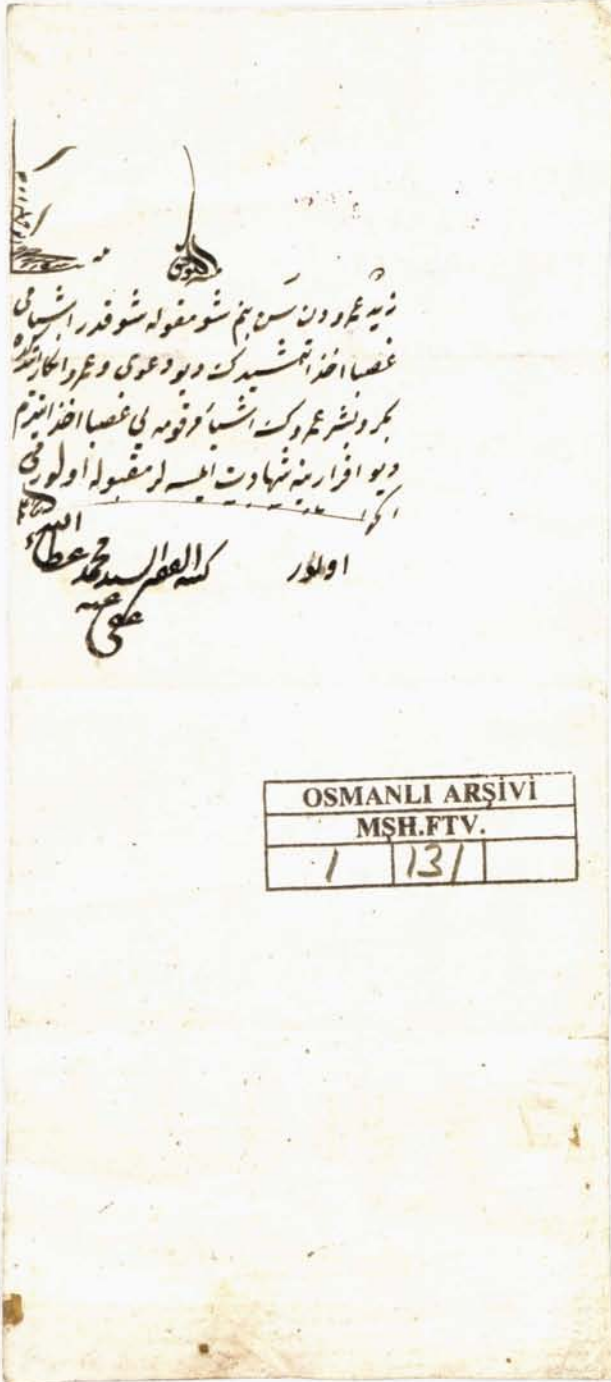 منه التوفيق
زيد عمرودن سن بنم شو مقوله شو قدر اشيامى
غصبا اخذ ايتمشيدك ديو دعوى و عمرو انكار ايتدكده
بكر و بشر عمروك اشياء مرقومه يى غصبا اخذ ايتدم
ديو اقرارينه شهادت ايلسه لر مقبوله اولورمى
الجواب
اولور
كتبه الفقير السيد محمد عطاء الله
عفى عنه
OSMANLI ARŞİVİ
MŞH.FTV.
1 131